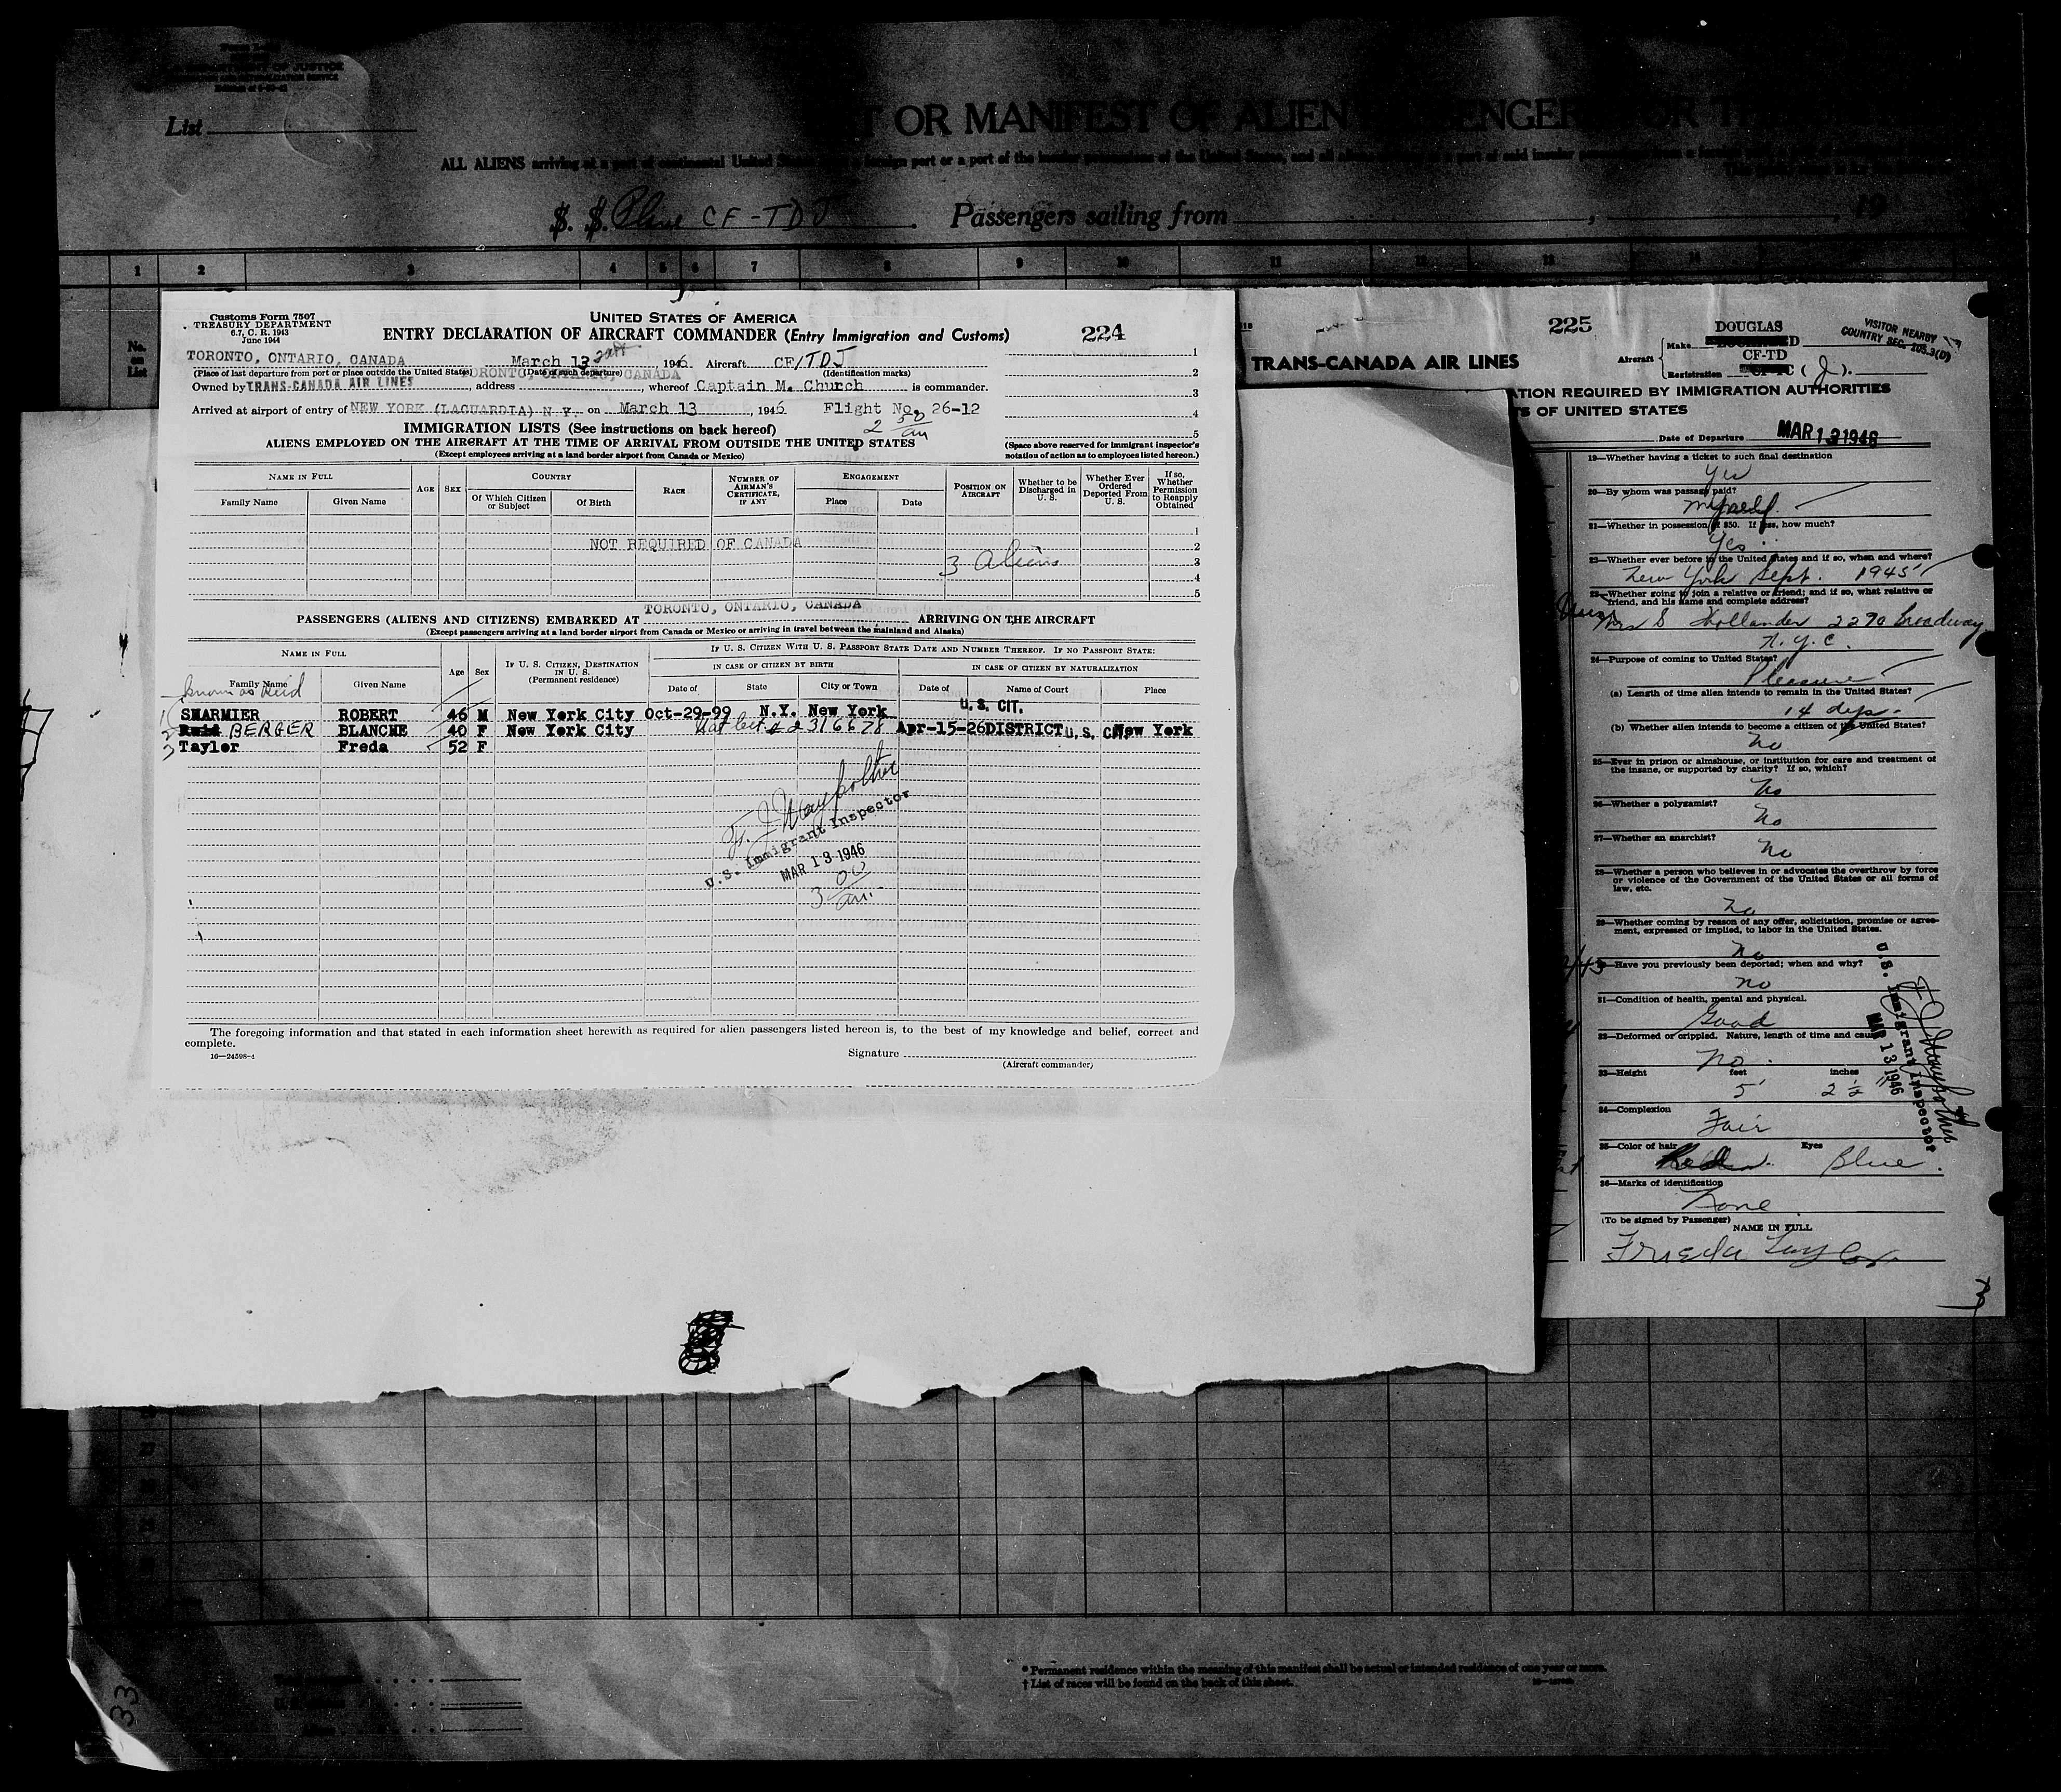 DEPARTMENT OF JUSTICE
List
T OR MANIFEST OF ALIEN
ALL ALIENS arriving at a port of continental United
S. S. Plane CF-TDJ . Passengers sailing from , , 19
1 2 3 4 5 6 7 8 9 10 11 12 13 14
No. on List
Customs Form 7507
TREASURY DEPARTMENT
6.7, C. R. 1943
June 1944
UNITED STATES OF AMERICA
ENTRY DECLARATION OF AIRCRAFT COMMANDER (Entry Immigration and Customs)
224
TORONTO, ONTARIO, CANADA March 13 1946 Aircraft CF/TDJ
(Place of last departure from port or place outside the United States) (Date of such departure) (Identification marks)
TORONTO, ONTARIO, CANADA
Owned by TRANS-CANADA AIR LINES, address , whereof Captain M. Church is commander.
Arrived at airport of entry of NEW YORK (LAGUARDIA) N.Y. on March 13, 1946 Flight No. 26-12
2 50 am
IMMIGRATION LISTS (See instructions on back hereof)
ALIENS EMPLOYED ON THE AIRCRAFT AT THE TIME OF ARRIVAL FROM OUTSIDE THE UNITED STATES
(Except employees arriving at a land border airport from Canada or Mexico)
1
2
3
4
5
(Space above reserved for immigrant inspector's
notation of action as to employees listed hereon.)
NAME IN FULL
Family Name Given Name
AGE SEX
COUNTRY
Of Which Citizen or Subject Of Birth
RACE
NUMBER OF AIRMAN'S CERTIFICATE, IF ANY
ENGAGEMENT
Place Date
POSITION ON AIRCRAFT
Whether to be Discharged in U. S.
Whether Ever Ordered Deported From U. S.
If so, Whether Permission to Reapply Obtained
1
NOT REQUIRED OF CANADA 2
3 Aliens 3
4
5
TORONTO, ONTARIO, CANADA
PASSENGERS (ALIENS AND CITIZENS) EMBARKED AT ARRIVING ON THE AIRCRAFT
(Except passengers arriving at a land border airport from Canada or Mexico or arriving in travel between the mainland and Alaska)
NAME IN FULL
Family Name Given Name
Age Sex
IF U. S. CITIZEN, DESTINATION IN U. S. (Permanent residence)
IF U. S. CITIZEN WITH U. S. PASSPORT STATE DATE AND NUMBER THEREOF. IF NO PASSPORT STATE:
IN CASE OF CITIZEN BY BIRTH
Date of State City or Town
IN CASE OF CITIZEN BY NATURALIZATION
Date of Name of Court Place
known as Reid
1 SHARMIER ROBERT 46 M New York City Oct-29-99 N.Y. New York U.S. CIT.
2 Reid BERGER BLANCHE 40 F New York City Nat Cert # 2316678 Apr-15-26 DISTRICT U.S. C New York
3 Taylor Freda 52 F
U.S. Immigrant Inspector
MAR 13 1946
3 00 am.
The foregoing information and that stated in each information sheet herewith as required for alien passengers listed hereon is, to the best of my knowledge and belief, correct and
complete.
16—24598-4
Signature
(Aircraft commander)
225
TRANS-CANADA AIR LINES
DOUGLAS
Aircraft Make
CF-TD
Registration (J).
VISITOR NEARBY
COUNTRY SEC. 203.3(D)
ATION REQUIRED BY IMMIGRATION AUTHORITIES
TS OF UNITED STATES
Date of Departure MAR 13 1946
19—Whether having a ticket to such final destination
Yes
20—By whom was passage paid?
Myself.
21—Whether in possession of $50. If less, how much?
Yes
22—Whether ever before in the United States and if so, when and where?
New York Sept. 1945
23—Whether going to join a relative or friend; and if so, what relative or
friend, and his name and complete address?
Mrs S Hollander 2270 Broadway
N.Y.C.
24—Purpose of coming to United States?
Pleasure
(a) Length of time alien intends to remain in the United States?
14 days.
(b) Whether alien intends to become a citizen of the United States?
No
25—Ever in prison or almshouse, or institution for care and treatment of
the insane, or supported by charity? If so, which?
No
26—Whether a polygamist?
No
27—Whether an anarchist?
No
28—Whether a person who believes in or advocates the overthrow by force
or violence of the Government of the United States or all forms of
law, etc.
No
29—Whether coming by reason of any offer, solicitation, promise or agree-
ment, expressed or implied, to labor in the United States.
No
30—Have you previously been deported; when and why?
No
31—Condition of health, mental and physical.
Good
32—Deformed or crippled. Nature, length of time and cause
No.
33—Height feet inches
5' 2 ½"
34—Complexion
Fair
35—Color of hair Eyes
Blue.
36—Marks of identification
None
(To be signed by Passenger)
NAME IN FULL
Frieda Taylor
U.S. Immigrant Inspector
MAR 13 1946
3
33
* Permanent residence within the meaning of this manifest shall be actual or intended residence of one year or more.
† List of races will be found on the back of this sheet.